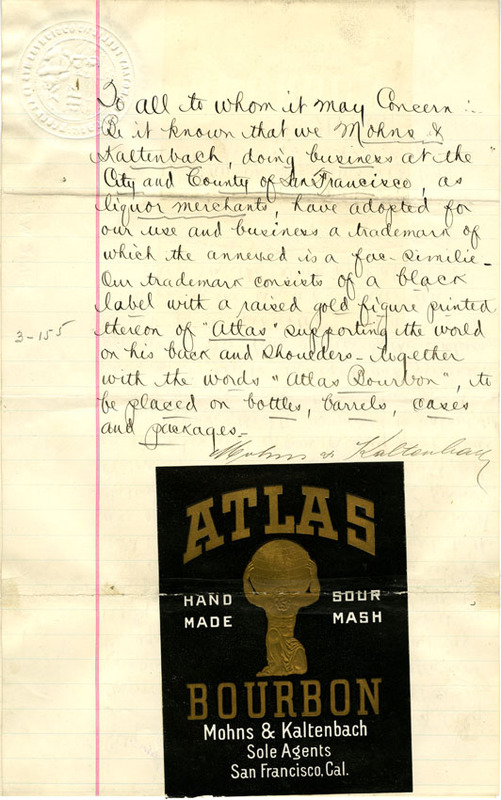 To all to whom it may Concern :-
Be it known that we Mohns &
Kaltenbach, doing business at the
City and County of San Francisco, as
liquor merchants, have adopted for
our use and business a trademark of
which the annexed is a fac-similie-
Our trademark consists of a black
label with a raised gold figure printed
thereon of "Atlas" supporting the world
on his back and shoulders - together
with the words "Atlas Bourbon", to
be placed on bottles, barrels, cases
and packages-
3-155
Mohns & Kaltenbach
ATLAS
HAND MADE
SOUR MASH
BOURBON
Mohns & Kaltenbach
Sole Agents
San Francisco, Cal.